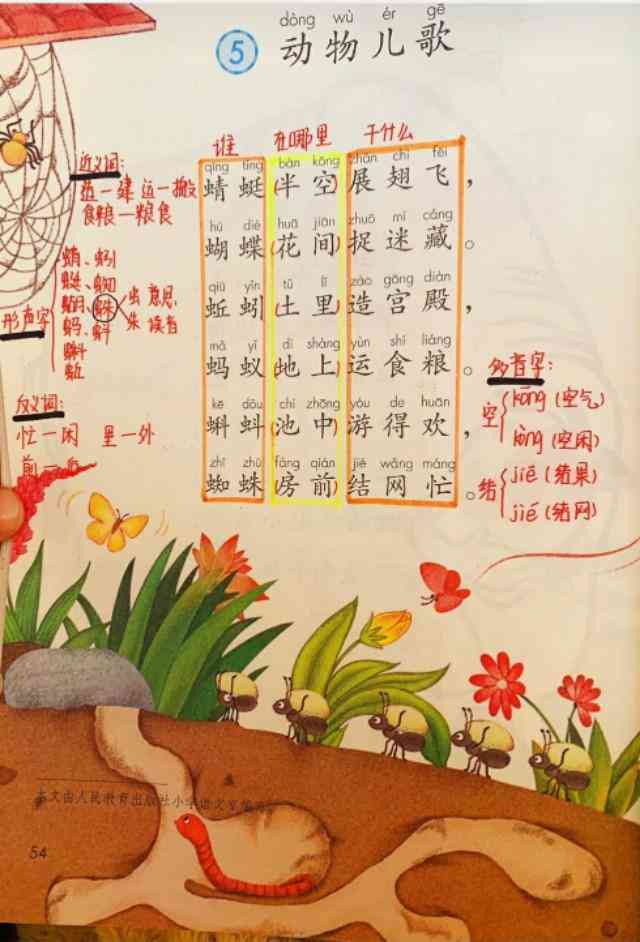 dòng wù ér gē
5 动物儿歌
谁 在哪里 干什么
qīng tíng bàn kōng zhǎn chì fēi
蜻蜓(半空)展翅飞，
hú dié huā jiān zhuō mí cáng
蝴蝶(花间)捉迷藏。
qiū yǐn tǔ lǐ zào gōng diàn
蚯蚓(土里)造宫殿，
mǎ yǐ dì shàng yùn shí liáng
蚂蚁(地上)运食粮。
kē dǒu chí zhōng yóu de huān
蝌蚪(池中)游得欢，
zhī zhū fáng qián jié wǎng máng
蜘蛛(房前)结网忙。
近义词：
造一建 运一搬
食粮一粮食
形声字
蜻、蚓
蜓、蜘
蝴、蛛 虫 意思
朱 读音
蚂、蚪
蝌
蚯
反义词：
忙一闲 里一外
前一后
多音字：
空 kōng(空气)
kòng(空闲)
结 jiē(结果)
jié(结网)
本文由人民教育出版社小学语文室编写
54